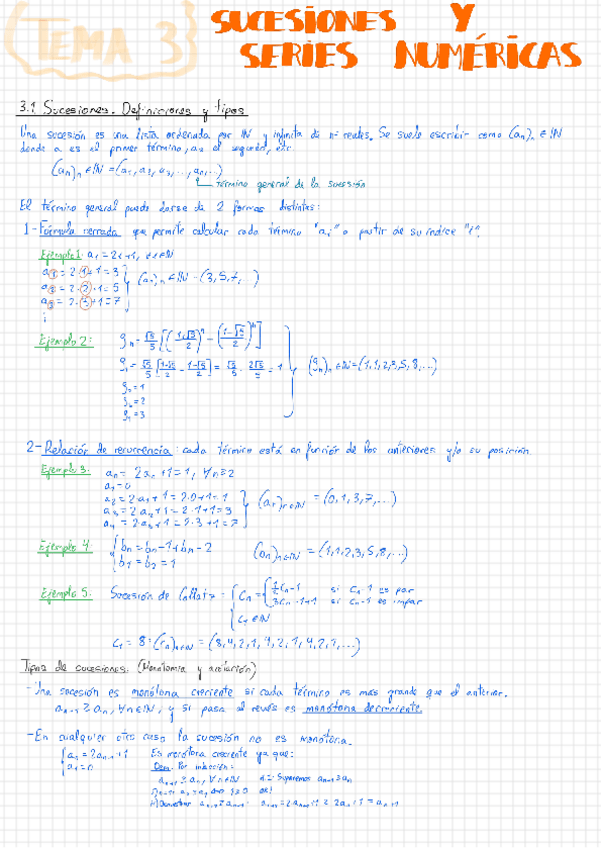 TEMA 3
SUCESIONES Y
SERIES NUMÉRICAS
3.1 Sucesiones. Definiciones y tipos
Una sucesión es una lista ordenada por IN y infinita de nº reales. Se suele escribir como (an)n ∈ IN
donde a es el primer término, a2 el segundo, etc
(an)n ∈ IN = (a1, a2, a3, ..., an, ...)
término general de la sucesión
El término general puede darse de 2 formas distintas:
1- Fórmula cerrada que permite calcular cada término "ai" a partir de su índice "i"
Ejemplo 1: ai = 2i+1, i ∈ IN
a1 = 2·1+1 = 3
a2 = 2·2+1 = 5
a3 = 2·3+1 = 7
(an)n ∈ IN = (3, 5, 7, ...)
Ejemplo 2:
(gn)n ∈ IN = (1, 1, 2, 3, 5, 8, ...)
g2 = 1
g3 = 2
g4 = 3
2- Relación de recurrencia: cada término está en función de los anteriores y/o su posición
Ejemplo 3. an = 2an +1 = 1, ∀n≥2
a1 = 0
a2 = 2a1 + 1 = 2·0+1 = 1
a3 = 2a2 + 1 = 2·1+1 = 3
a4 = 2a3 + 1 = 2·3+1 = 7
(an)n∈IN = (0, 1, 3, 7, ...)
Ejemplo 4. bn = bn-1 + bn-2
b1 = b2 = 1
(an)n∈IN = (1, 1, 2, 3, 5, 8, ...)
Ejemplo 5. Sucesión de Collatz: Cn = 1/2 Cn-1 si Cn-1 es par
3Cn-1+1 si Cn-1 es impar
C1 ∈ IN
C1 = 8: (Cn)n∈IN = (8, 4, 2, 1, 4, 2, 1, 4, 2, 1, ...)
Tipos de sucesiones. (Monotomia y acotación)
- Una sucesión es monótona creciente si cada término es mas grande que el anterior.
an+1 ≥ an, ∀n∈IN; y si pasa al revés es monótona decreciente.
- En cualquier otro caso la sucesión no es monótona.
an = 2an-1 + 1 Es monótona creciente ya que:
Dem. Por inducción:
an+1 ≥ an, ∀n∈IN